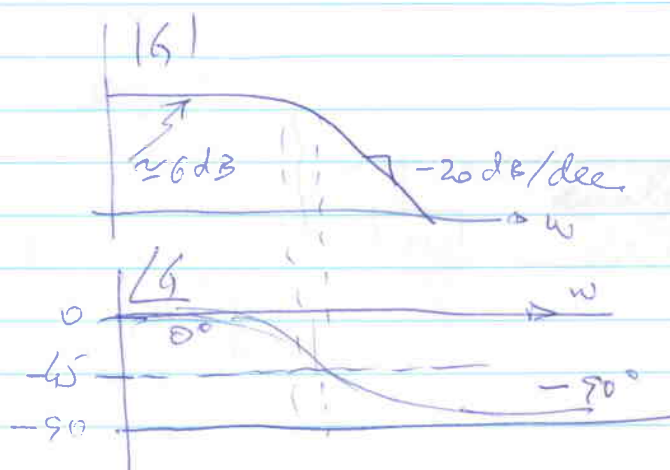 |G|
≃6dB
-20 dB/dec
ω
∠G
ω
0
0°
-45
-90°
-90